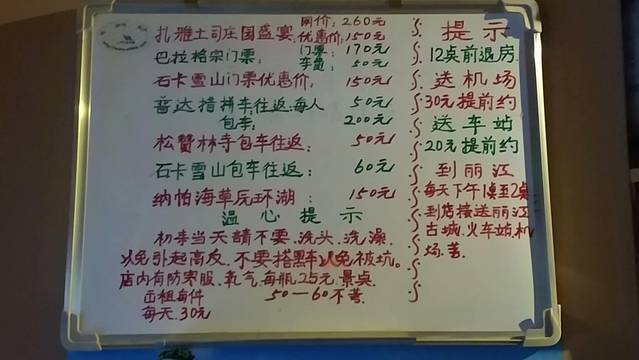 扎雅土司庄园盛宴 网价:260元
优惠价:150元
巴拉格宗门票: 门票:170元
车费:50元
石卡雪山门票优惠价: 150元
普达措拼车往返:每人 50元
包车: 200元
松赞林寺包车往返: 50元
石卡雪山包车往返: 60元
纳帕海草原环湖: 150元
温心提示
初来当天请不要.洗头.洗澡.
以免引起高反.不要搭黑车以免被坑。
店内有防寒服.氧气.每瓶.25元.景点.
出租每件 50—60不等
每天.30元
提示
12点前退房
送机场
30元提前约
送车站
20元提前约
到丽江
每天下午1点至2点
到店接送丽江
古城.火车站.机
场.等